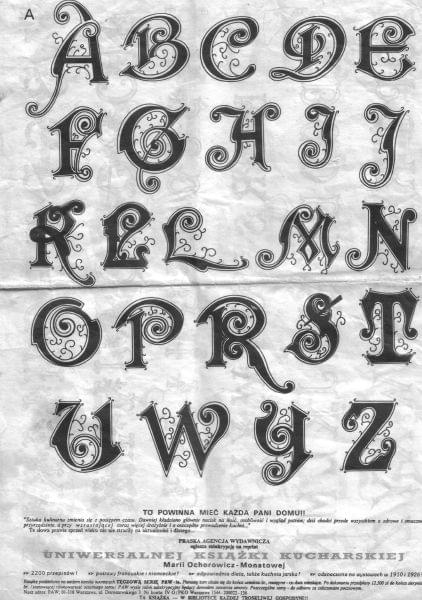 A
A B C D E
F G H I J
K Ł L M N
O P R Ś T
U W Y Z
TO POWINNA MIEĆ KAŻDA PANI DOMU!!
"Sztuka kulinarna zmienia się z postępem czasu. Dawniej kładziono głównie nacisk na ilość, osobliwość i wygląd potraw; dziś chodzi przede wszystkim o zdrowe i smaczne
przyrządzenie, a przy wzrastającej coraz więcej drożyźnie i o oszczędne prowadzenie kuchni..."
Te słowa prawie sprzed wieku nie nie straciły na aktualności i dlatego...
PRASKA AGENCJA WYDAWNICZA
ogłasza subskrypcję na reprint
UNIWERSALNEJ KSIĄŻKI KUCHARSKIEJ
Marii Ochorowicz-Monatowej
2200 przepisów! potrawy francuskie i niemieckie! odpowiednia dieta, także kuchnia jarska! odznaczona na wystawach w 1910 i 1926!
TA KSIĄŻKA — W BIBLIOTECE KAŻDEJ TROSKLIWEJ GOSPODYNI!